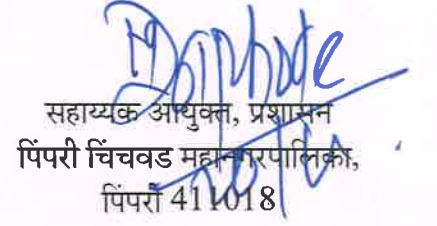 सहाय्यक आयुक्त, प्रशासन
पिंपरी चिंचवड महानगरपालिका,
पिंपरी 411018